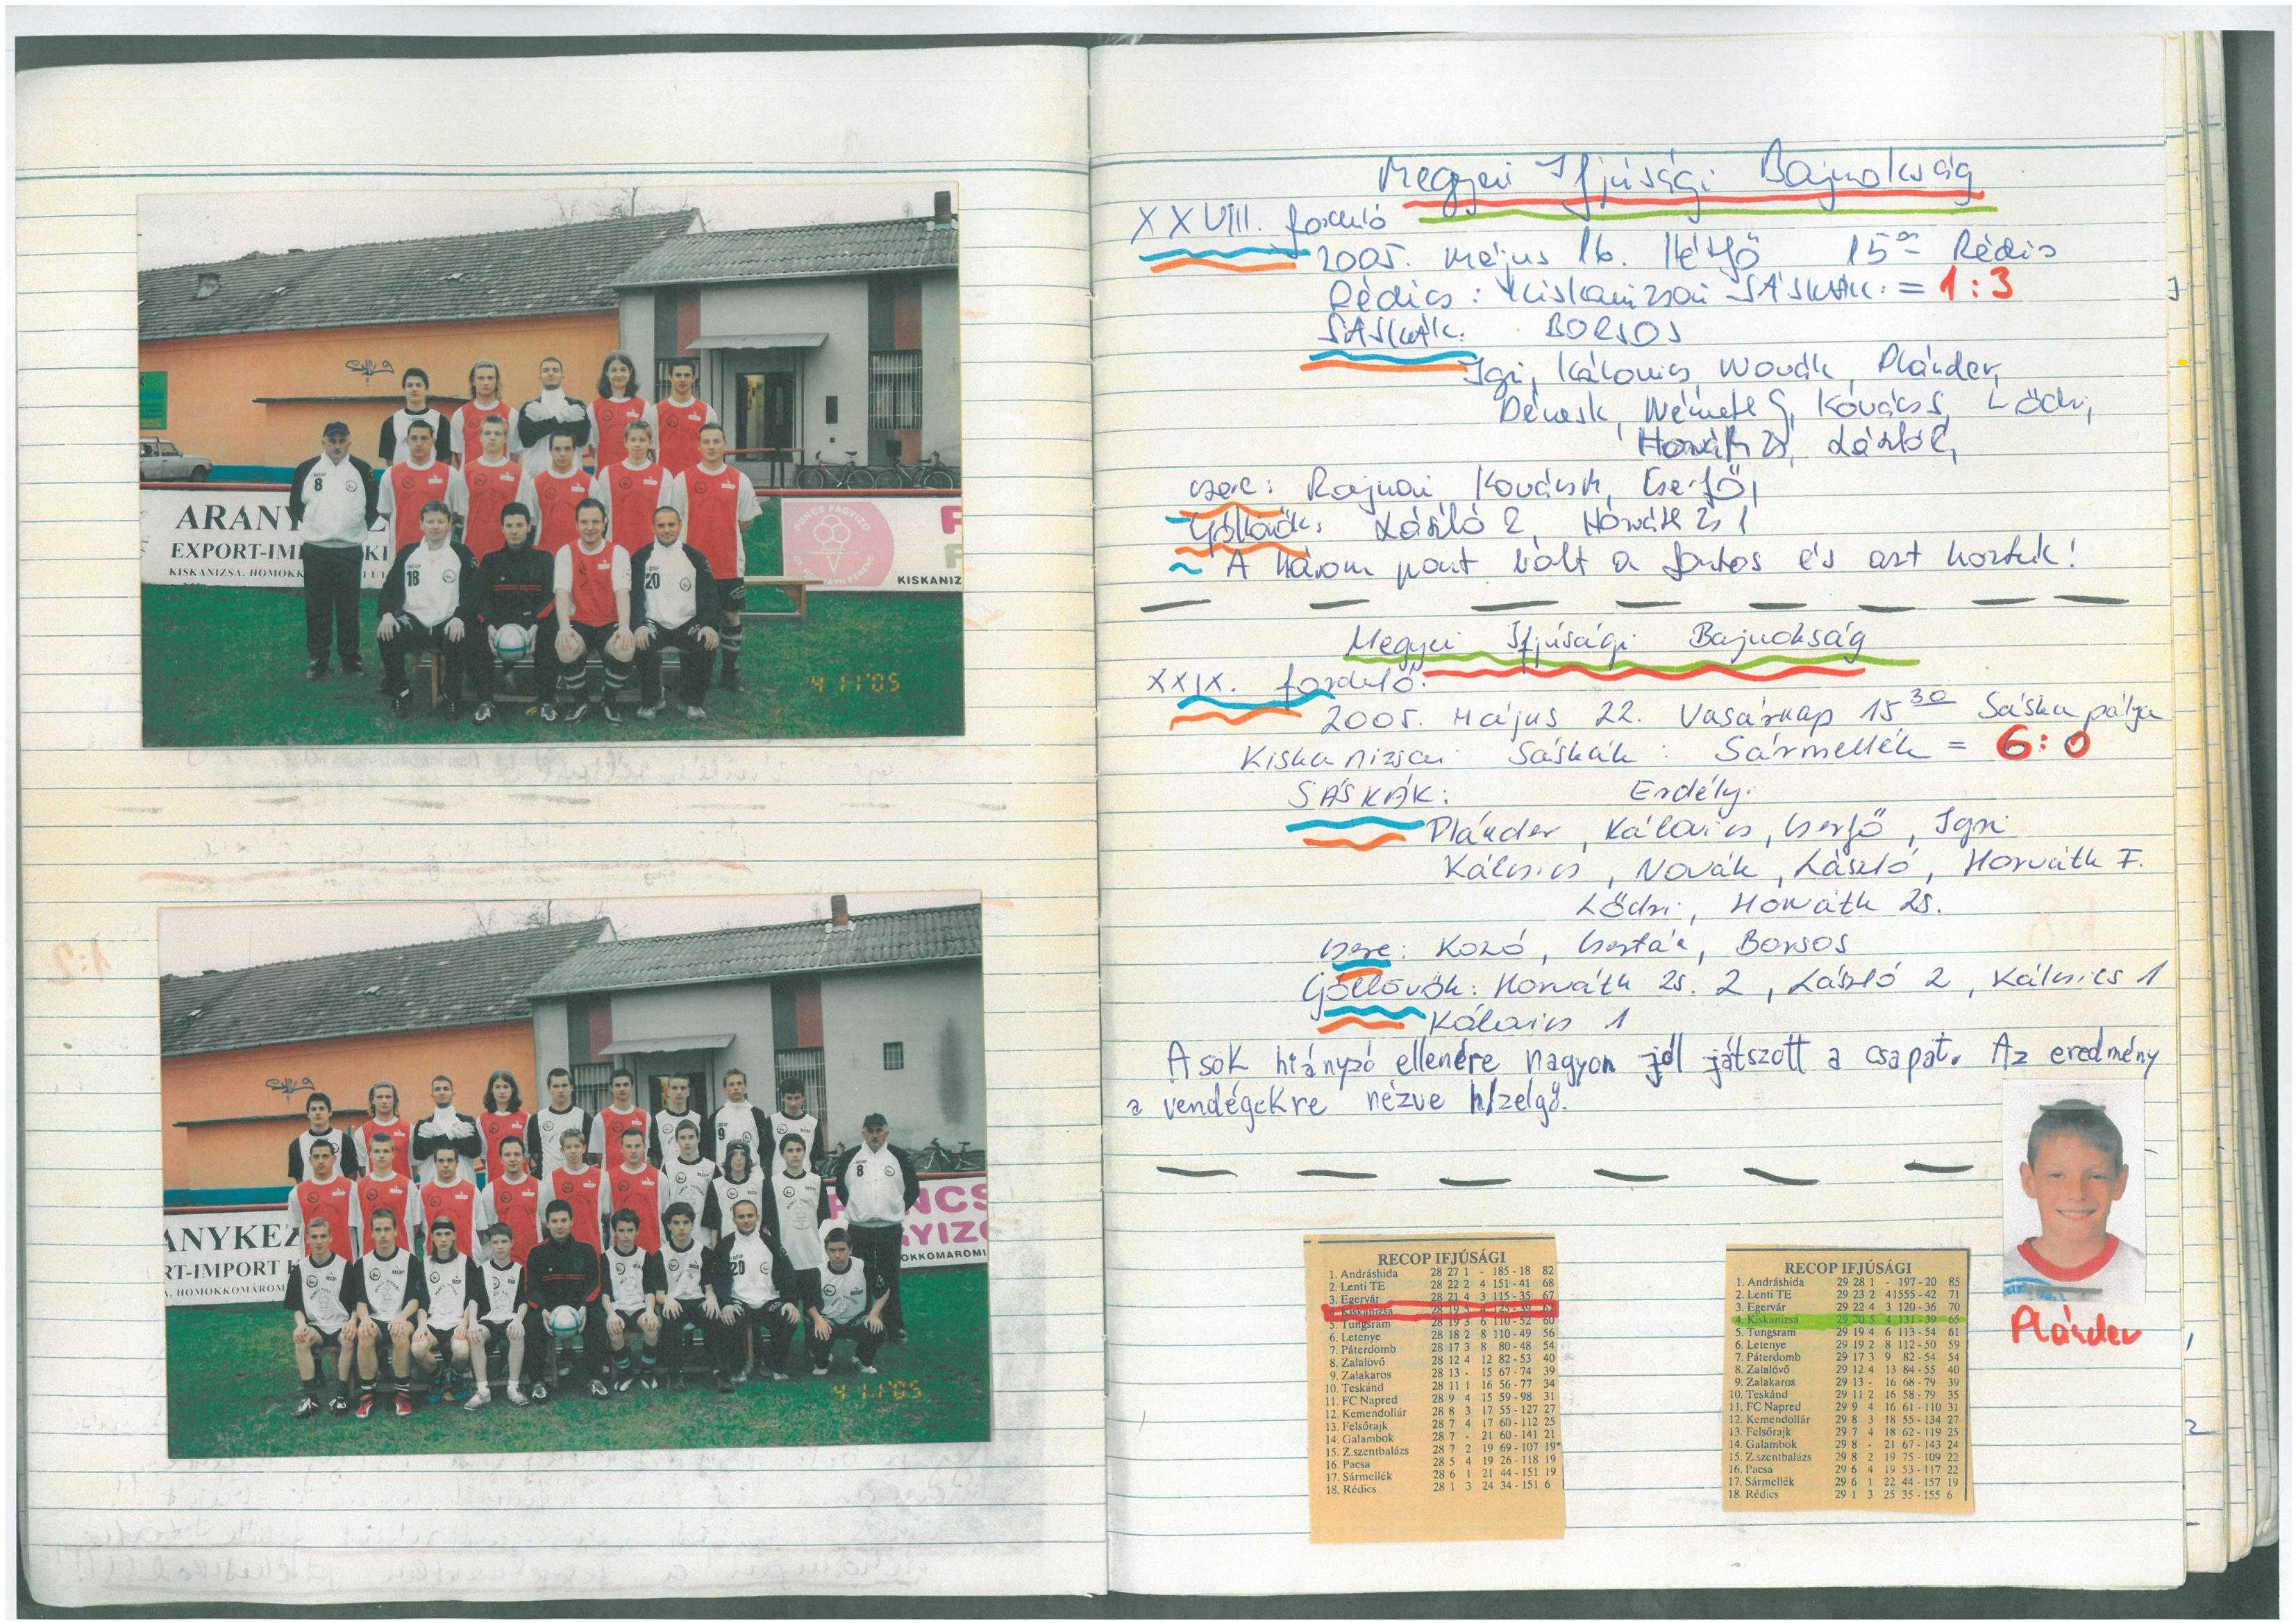 8
ARANY
EXPORT-IM KI
KISKANIZSA, HOMOKK
PUNCS FAGYIZÓ
KISKANIZ
18
20
4 11'05
9
8
ANYKEZ
RT-IMPORT
A. HOMOKKOMÁROM
NCS
GYIZÓ
OKKOMÁROMI
20
4 11'05
Megyei Ifjúsági Bajnokság
XXVIII. forduló
2005. május 16. Hétfő 15 Rédics
Rédics : Kiskanizsai SÁSKÁK = 1:3
SÁSKÁK: BORSOS
Igri, Kálovics, Novák, Plánder,
Németh G, Kovács S, Lődri,
Horváth Zs, László,
csere: Rajnai, Cserfő,
Góllövők: László 2, Horváth Zs 1
A három pont volt a fontos és azt hoztuk!
Megyei Ifjúsági Bajnokság
XXIX. forduló.
2005. Május 22. Vasárnap 15 30 Sáska pálya
Kiskanizsai Sáskák : Sármellék = 6:0
SÁSKÁK: Erdélyi
Plánder, Kálovics, Cserfő, Igri
Kálcsics, Novák, László, Horváth F.
Lődri, Horváth Zs.
csere: Kozó, Borsos
Góllövők: Horváth Zs. 2, László 2, Kálcsics 1
Kálovics 1
A sok hiányzó ellenére nagyon jól játszott a csapat. Az eredmény
a vendégekre nézve hízelgő.
RECOP IFJÚSÁGI
1. Andráshida 28 27 1 - 185-18 82
2. Lenti TE 28 22 2 4 151-41 68
3. Egervár 28 21 4 3 115-35 67
4. Kiskanizsa 28 19 5 4 125-39 62
5. Tungsram 28 19 3 6 110-52 60
6. Letenye 28 18 2 8 110-49 56
7. Páterdomb 28 17 3 8 80-48 54
8. Zalalövő 28 12 4 12 82-53 40
9. Zalakaros 28 13 - 15 67-74 39
10. Teskánd 28 11 1 16 56-77 34
11. FC Napred 28 9 4 15 59-98 31
12. Kemendollár 28 8 3 17 55-127 27
13. Felsőrajk 28 7 4 17 60-112 25
14. Galambok 28 7 - 21 60-141 21
15. Z.szentbalázs 28 7 2 19 69-107 19*
16. Pacsa 28 5 4 19 26-118 19
17. Sármellék 28 6 1 21 44-151 19
18. Rédics 28 1 3 24 34-151 6
RECOP IFJÚSÁGI
1. Andráshida 29 28 1 - 197-20 85
2. Lenti TE 29 23 2 41555-42 71
3. Egervár 29 22 4 3 120-36 70
4. Kiskanizsa 29 20 5 4 131-39 65
5. Tungsram 29 19 4 6 113-54 61
6. Letenye 29 19 2 8 112-50 59
7. Páterdomb 29 17 3 9 82-54 54
8. Zalalövő 29 12 4 13 84-55 40
9. Zalakaros 29 13 - 16 68-79 39
10. Teskánd 29 11 2 16 58-79 35
11. FC Napred 29 9 4 16 61-110 31
12. Kemendollár 29 8 3 18 55-134 27
13. Felsőrajk 29 7 4 18 62-119 25
14. Galambok 29 8 - 21 67-143 24
15. Z.szentbalázs 29 8 2 19 75-109 22
16. Pacsa 29 6 4 19 53-117 22
17. Sármellék 29 6 1 22 44-157 19
18. Rédics 29 1 3 25 35-155 6
Plánder